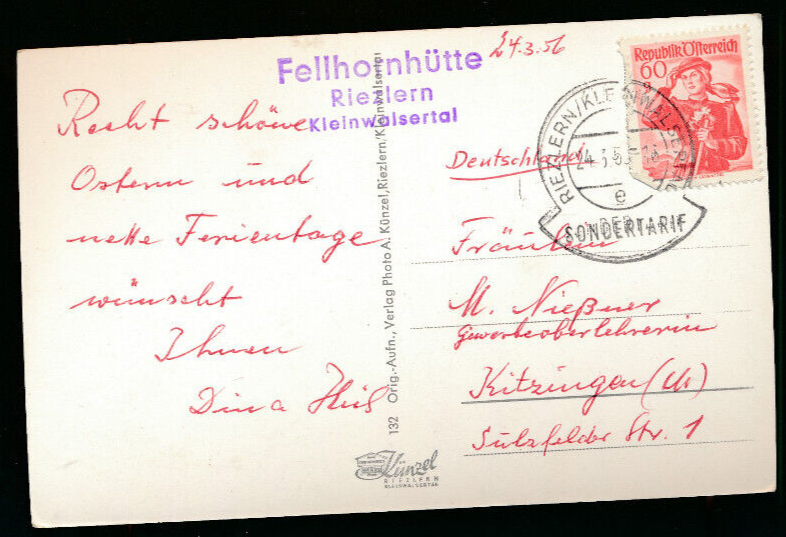 Fellhornhütte
Riezlern
Kleinwalsertal
24.3.56
Recht schöne
Ostern und
nette Ferientage
wünscht
Ihnen
Dina
132 Orig.-Aufn., Verlag Photo A. Künzel, Riezlern/Kleinwalsertal
Künzel
RIEZLERN
KLEINWALSERTAL
Republik Österreich
60
g
RIEZLERN/KLEINWALSERTAL
24.3.56
e
SONDERTARIF
Deutschland
Fräulein
M. Nießner
Gewerbeoberlehrerin
Kitzingen (M)
Sulzfelder Str. 1